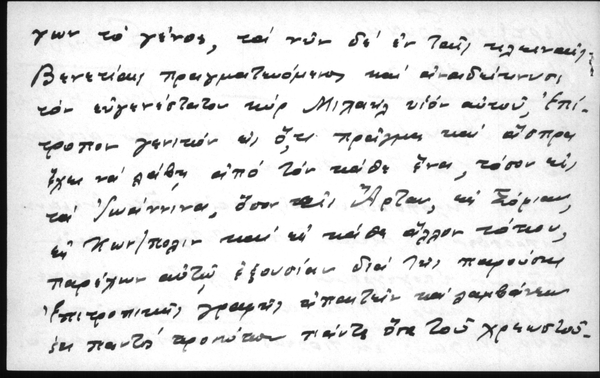 γων τὸ γένος, τὰ νῦν δὲ ἐν ταῖς κλειναῖς
Βενετίαις πραγματευόμενος καὶ ἀναδείκνυσι
τὸν εὐγενέστατον κὺρ Μιχαὴλ υἱόν αὐτοῦ, Ἐπί-
τροπον γενικὸν εἰς ὅ,τι πρᾶγμα καὶ ἄσπρα
ἔχει νὰ λάβῃ ἀπὸ τὸν κάθε ἕνα, τόσον εἰς
τὰ Ἰωάννινα, ὅσον καὶ Ἄρταν, εἰς
εἰς Κων/πολιν καὶ εἰς κάθε ἄλλον τόπον,
παρέχων αὐτῷ ἐξουσίαν διὰ τῆς παρούσης
Ἐπιτροπικῆς γραφῆς ἀπαιτεῖν καὶ λαμβάνειν
ἐκ παντὸς προσώπου πάντα ὅσα τοῦ χρεωστοῦ-